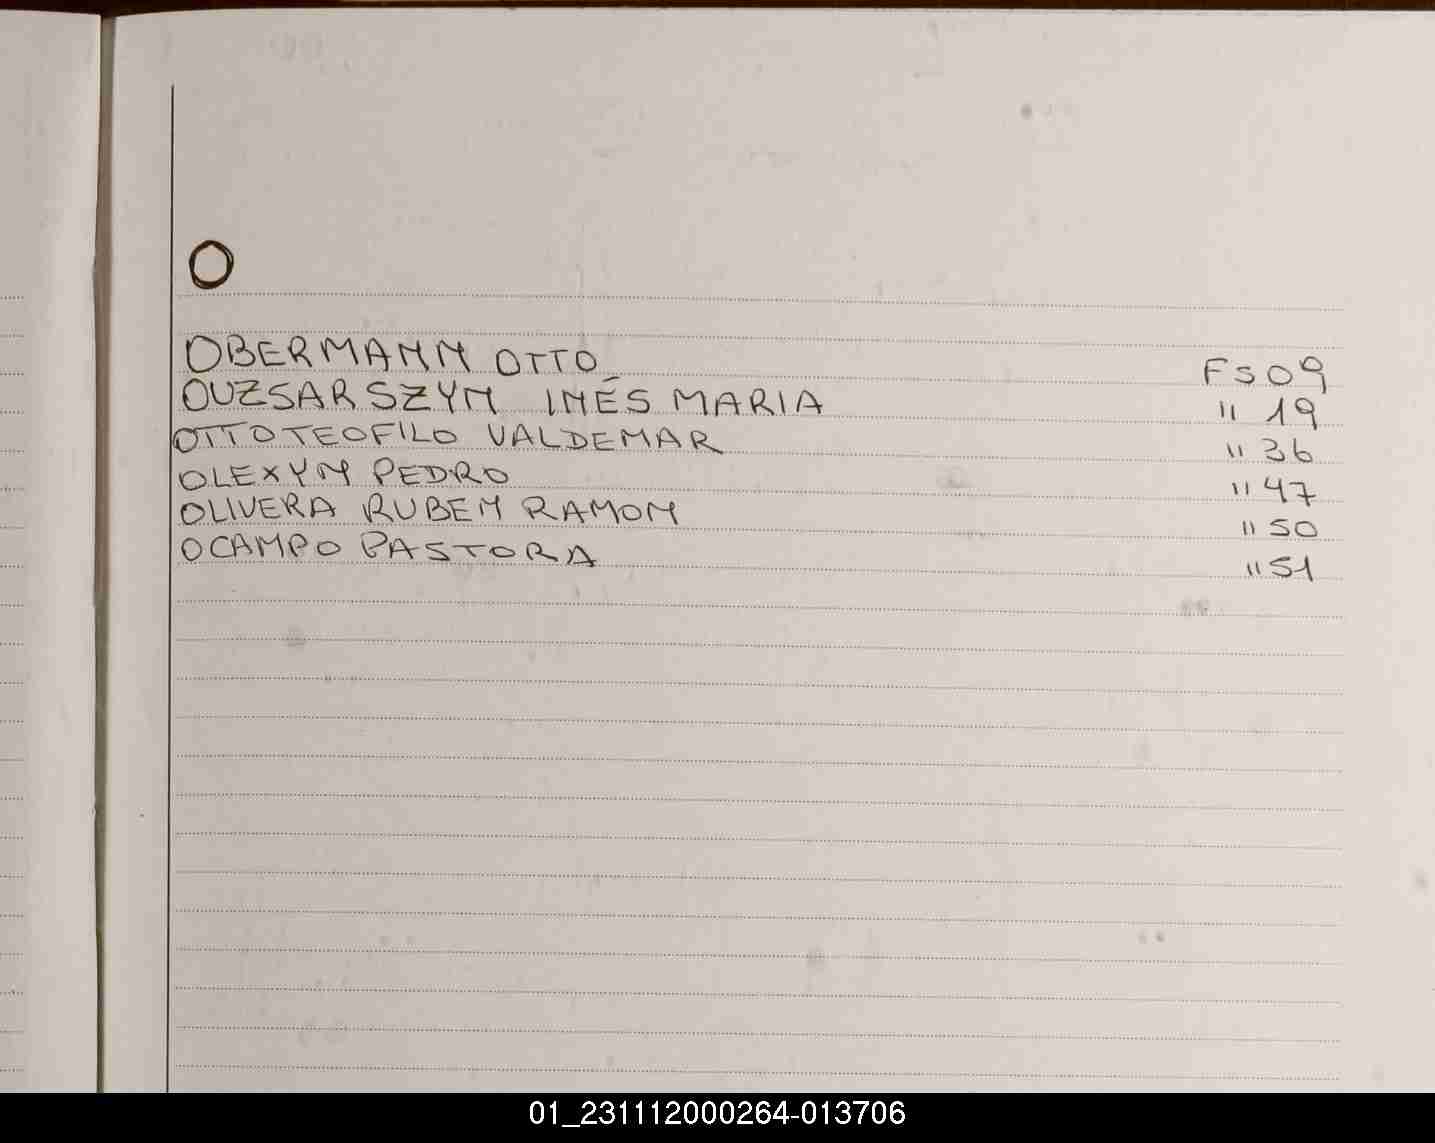 O
OBERMANN OTTO FS 09
OUZSARSZYN INÉS MARIA " 19
OTTO TEOFILO VALDEMAR " 36
OLEXYN PEDRO " 47
OLIVERA RUBEN RAMON " 50
OCAMPO PASTORA " 51
01_231112000264-013706